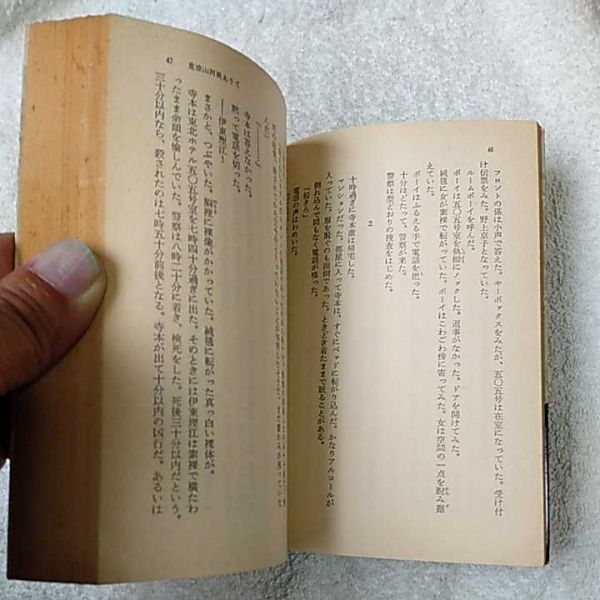 46
フロントの係は小声で答えた。キーボックスをみたが、五〇五号は在室になっていた。受け付
け伝票をみた。野上京子となっていた。
ルームボーイを呼んだ。
ボーイは五〇五号室を執拗にノックした。返事がなかった。ドアを開けてみた。
絨毯に女が素裸で転がっていた。ボーイはこわごわ傍に寄ってみた。女は空間の一点を睨み据
えていた。
ボーイはふるえる手で電話を把った。
十分ほどたって、警察が来た。
警察は型どおりの捜査をはじめた。
2
十時過ぎに寺本徹は帰宅した。
マンションだった。部屋に入って寺本は、すぐにベッドに転がり込んだ。かなりアルコールが
入っていた。服を脱ぐのも面倒であった。ときどき着たままで眠ることがある。
倒れ込んで間もなく電話が鳴った。
「起きろ」
電話の声はわめいた。
47
「…………」
寺本は答えなかった。
黙って電話を切った。
——伊東理江！
まさかと、つぶやいた。脳裡に裸像がかかっていた。絨毯に転がった真っ白い裸体が。
寺本は東北ホテル五〇五号室を七時四十分過ぎに出た。そのときには伊東理江は素裸で横たわ
ったまま余韻を愉しんでいた。警察は八時二十分に着き、検死をした。死後三十分以内だという。
三十分以内なら、殺されたのは七時五十分前後となる。寺本が出て十分以内の凶行だ。あるいは